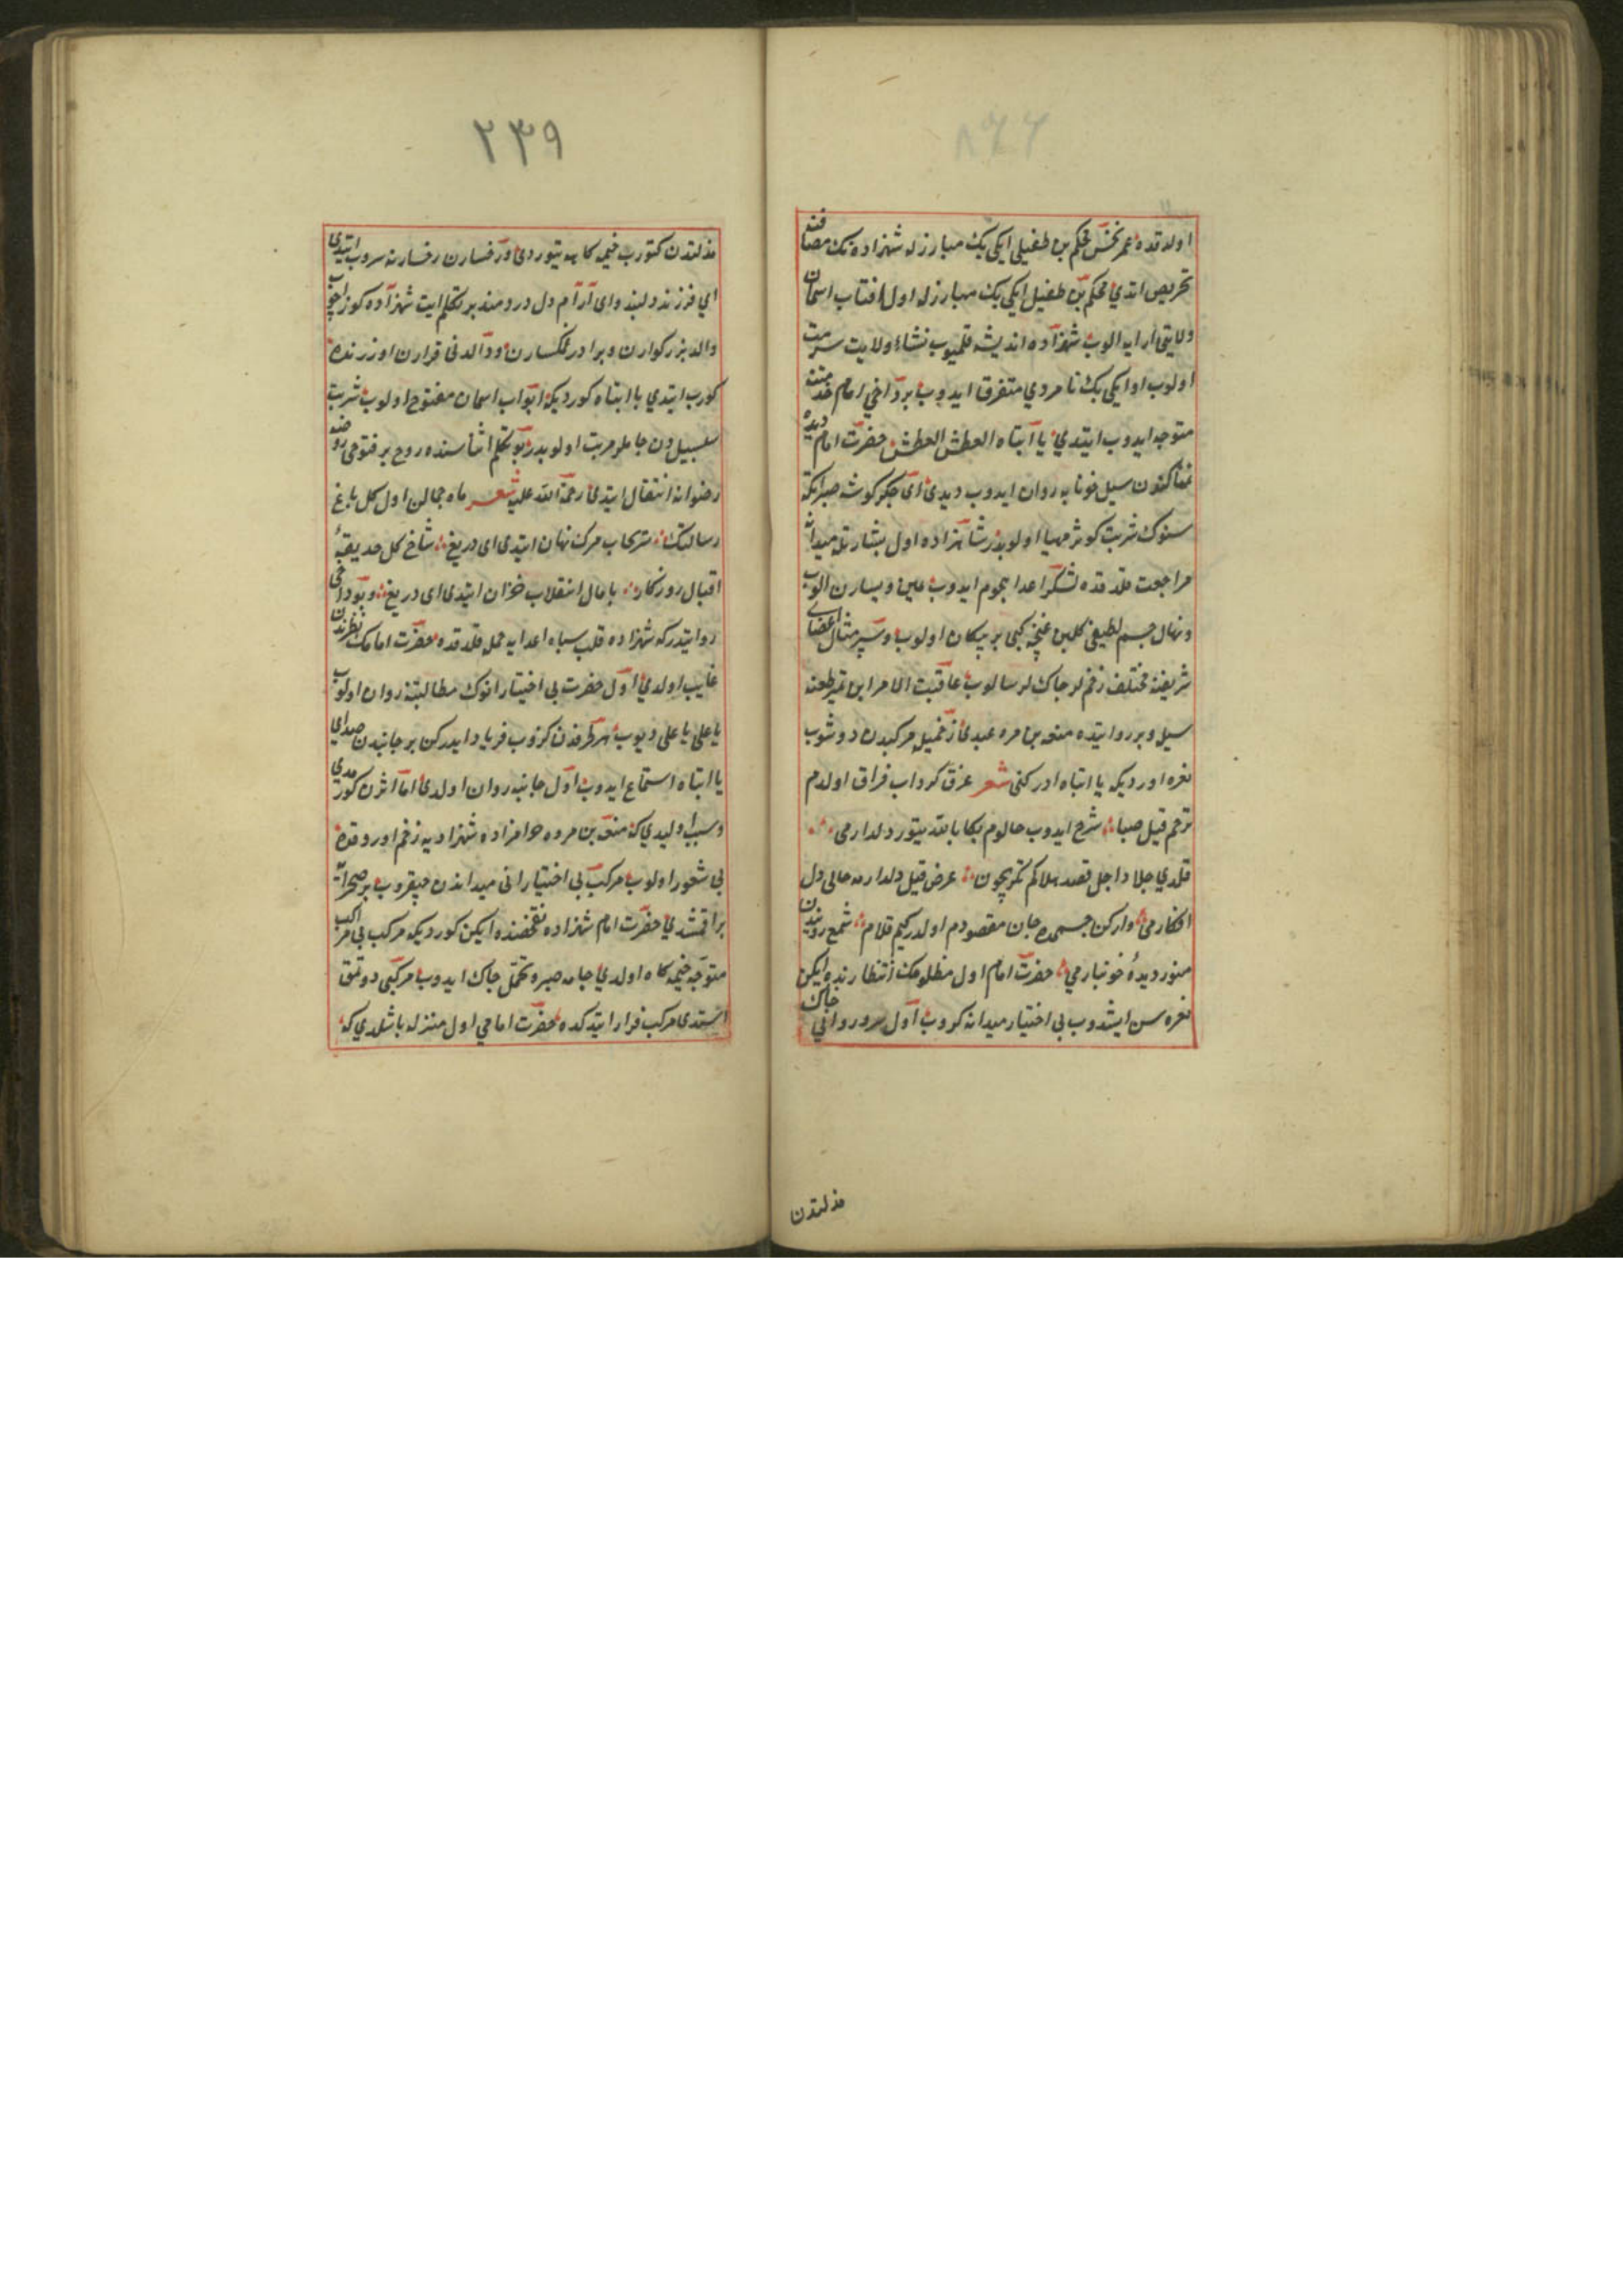 اولدقده عمر نحس محكم بن طفيلى ايكى بيك مبارزله شهزاده نك مصافنه
تحريص ايتدي محكم بن طفيل ايكى بيك مبارزله اول افتاب اسمان
ولايتى ارايه الوب شهزاده انديشه قلميوب نشاء ولايت سرمت
اولوب اوايكى بيك نامردي متفرق ايدوب برداخي امام خدمتنه
متوجه ايدوب ايتدي يا ابتاه العطش العطش حضرت امام ديده
نمناكندن سيل خونابه روان ايدوب ديدى اى جكر كوشه صبر ايكه
سنوك شربت كوثر مهيا اولوبدر شاهزاده اول بشارتله ميدانه
مراجعت قلدقده لشكر اعدا هجوم ايدوب يمين ويسارن الوب
ونهال جسم لطيفى كلبن غنچه كبى پر پيكان اولوب وسپر مثال اعضاى
شريفنه مختلف زخملر چاك لر سالوب عاقبت الامر ابن نمير طعنه
سيله وبر روايتده منقذ بن مره عبدى زخميله مركبدن دوشوب
نعره اوردیكه يا ابتاه ادركنى شعر غرق كرداب فراق اولدم
ترحم قيل صبا شرح ايدوب حالوم بكا باللّه يتور دلدارمى
قلدي جلاد اجل قصد هلاكم تكريچون عرض قيل دلدارمه حالى دل
افكارمى واركن جسمده جان مقصودم اولدركيم قلام شمع رويندن
منور ديدهٔ خونبارمي حضرت امام اول مظلومك انتظارنده ايكن
نعره سن ايشدوب بى اختيار ميدانه كروب اول سرو روانى چاك
مذلتدن
٢٣٩
مذلتدن كتورب خيمه كاهه يتوردى ورخسارن رخسارنه سروب ايتدى
اي فرزند دلبند واى آرام دل دردمند بر تكلم ايت شهزاده كوز اچوب
والد بزركوارن وبرادر غمكسارن ووالدنى قرارن اوزرنده
كورب ايتدي يا ابتاه كورديكه ابواب اسمان مفتوح اولوب شربت
سلسبيلدن جاملر مرتب اولوبدر بو تكلم اثناسنده روح پر فتوحى روضه
رضوانه انتقال ايتدى رحمة اللّه عليه شعر ماه جمالن اول كل باغ
رسالتك سحاب مرك نهان ايتدى اى دريغ شاخ كل حديقهٔ
اقبال روزكار پامال انقلاب خزان ايتدى اى دريغ وبو داخى
روايتدركه شهزاده قلب سپاه اعدايه حمله قلدقده حضرت امامك نظرندن
غايب اولدي اول حضرت بى اختيار انوك مطالبتنه روان اولوب
يا على يا على ديوب هر طرفدن كزوب فرياد ايدركن بر جانبدن صداى
يا ابتاه استماع ايدوب اول جانبه روان اولدى اما اثرن كورمدي
وسبب اوليدي كه منقذ بن مره حرامزاده شهزاديه زخم اوردقده
بى شعور اولوب مركب بى اختيار انى ميداندن چيقروب بر صحرايه
براقمشدي حضرت امام شهزاده تفحصنده ايكن كورديكه مركب بى راكب
متوجه خيمه كاه اولدي جامه صبر وتحمل چاك ايدوب مركبى دوتمق
استدى مركب فرار ايتدكده حضرت امامي اول منزله باشلدي كه